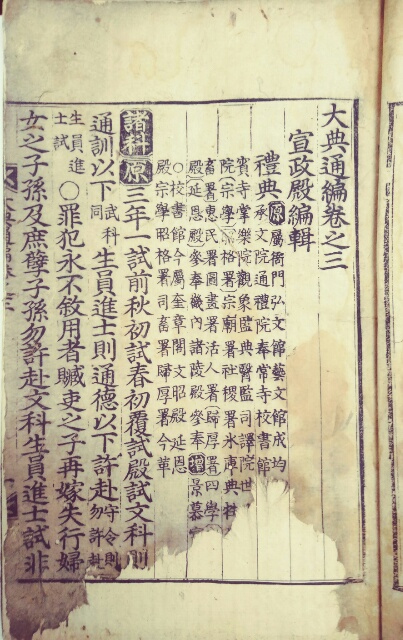 大典通編卷之三
宣政殿編輯
禮典 原 屬衙門弘文館藝文館成均
承文院通禮院奉常寺校書館
賓寺掌樂院觀象監典醫監司譯院世
院宗學昭格署宗廟署社稷署氷庫典牲
畜署惠民署圖畫署活人署歸厚署四學
殿延恩殿參奉畿內諸陵殿參奉 增 景慕
○校書館今屬奎章閣文昭殿延恩
殿宗學昭格署司畜署歸厚署今革
諸科 原 三年一試前秋初試春初覆試殿試文科則
通訓以下武科同生員進士則通德以下許赴守令則勿許赴
生員進士試○罪犯永不敘用者贓吏之子再嫁失行婦
女之子孫及庶孽子孫勿許赴文科生員進士試非